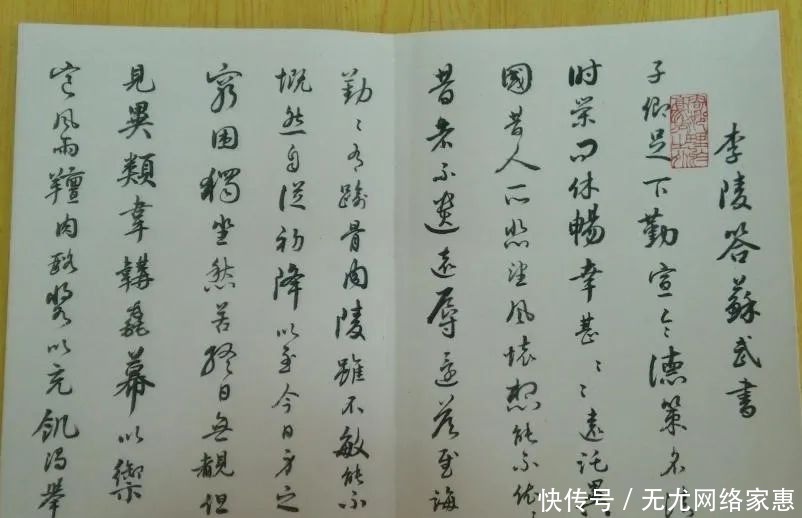 李陵答蘇武書
子卿足下勤宣令德策名清
时榮问休暢幸甚〻遠託異
國昔人所悲望风懷想能不依
昔者不遗遠辱還答慰誨
勤〻有踰骨肉陵雖不敏能不
慨然自從初降以至今日身之
窮困獨坐愁苦終日無覩但
見異類韋韝毳幕以禦
风雨羶肉酪漿以充飢渴舉
快传号 / 无尤网络家惠